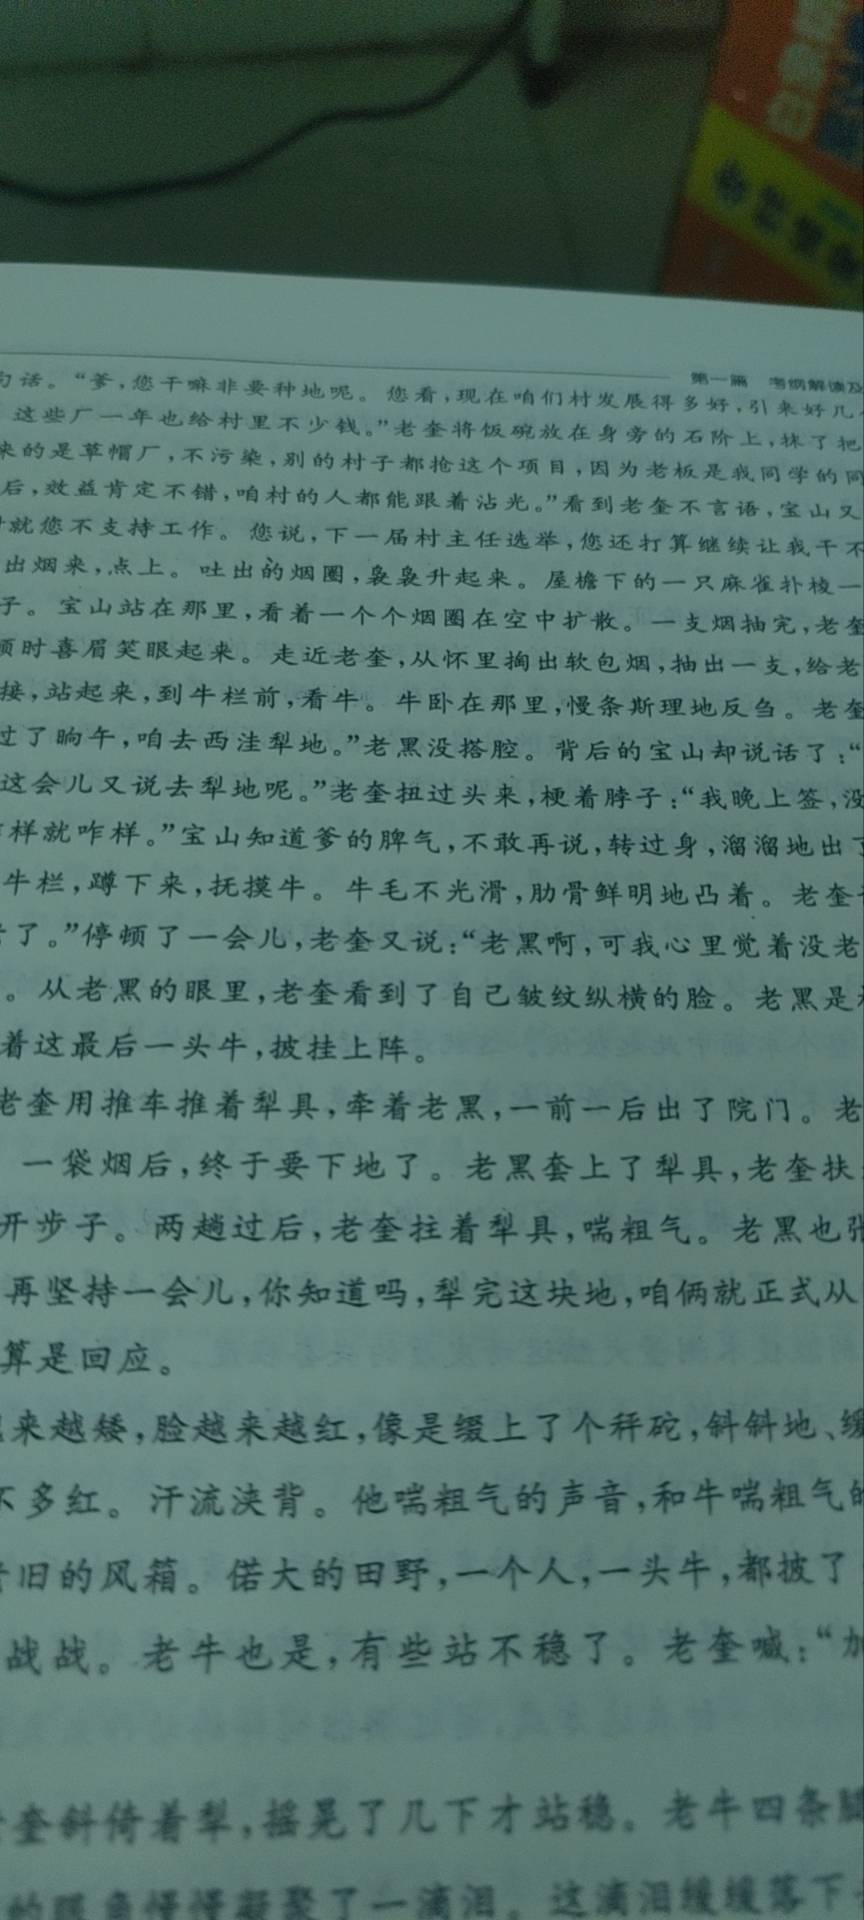 第一篇 考纲解读及
句话。“爹,您干嘛非要种地呢。您看,现在咱们村发展得多好,引来好几
这些厂一年也给村里不少钱。”老奎将饭碗放在身旁的石阶上,抹了把
来的是草帽厂,不污染,别的村子都抢这个项目,因为老板是我同学的同
后,效益肯定不错,咱村的人都能跟着沾光。”看到老奎不言语,宝山又
就您不支持工作。您说,下一届村主任选举,您还打算继续让我干不
出烟来,点上。吐出的烟圈,袅袅升起来。屋檐下的一只麻雀扑棱一
子。宝山站在那里,看着一个个烟圈在空中扩散。一支烟抽完,老奎
顿时喜眉笑眼起来。走近老奎,从怀里掏出软包烟,抽出一支,给老
接,站起来,到牛栏前,看牛。牛卧在那里,慢条斯理地反刍。老奎
过了晌午,咱去西洼犁地。”老黑没搭腔。背后的宝山却说话了:“
这会儿又说去犁地呢。”老奎扭过头来,梗着脖子:“我晚上签,没
样就咋样。”宝山知道爹的脾气,不敢再说,转过身,溜溜地出了
牛栏,蹲下来,抚摸牛。牛毛不光滑,肋骨鲜明地凸着。老奎
了。”停顿了一会儿,老奎又说:“老黑啊,可我心里觉着没老
。从老黑的眼里,老奎看到了自己皱纹纵横的脸。老黑是
着这最后一头牛,披挂上阵。
老奎用推车推着犁具,牵着老黑,一前一后出了院门。老
一袋烟后,终于要下地了。老黑套上了犁具,老奎扶
开步子。两趟过后,老奎拄着犁具,喘粗气。老黑也张
再坚持一会儿,你知道吗,犁完这块地,咱俩就正式从
算是回应。
来越矮,脸越来越红,像是缀上了个秤砣,斜斜地、缓
不多红。汗流浃背。他喘粗气的声音,和牛喘粗气的
旧的风箱。偌大的田野,一个人,一头牛,都披了
战战。老牛也是,有些站不稳了。老奎喊:“加
奎斜倚着犁,摇晃了几下才站稳。老牛四条腿
的眼角慢慢凝聚了一滴泪。这滴泪缓缓落下